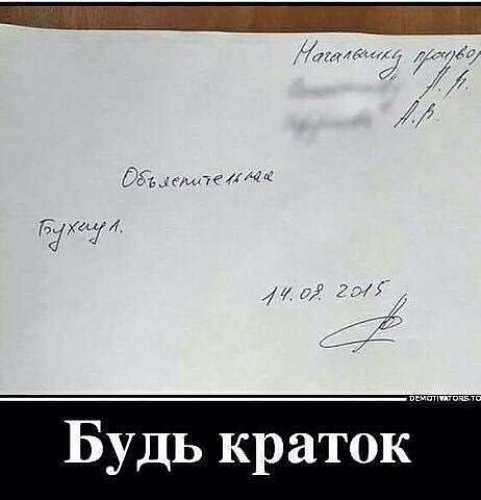 Начальнику произвор
А.В.
А.В.
Объяснительная
Бухнул.
14.08.2015
DEMOTIVATORS.TO
Будь краток